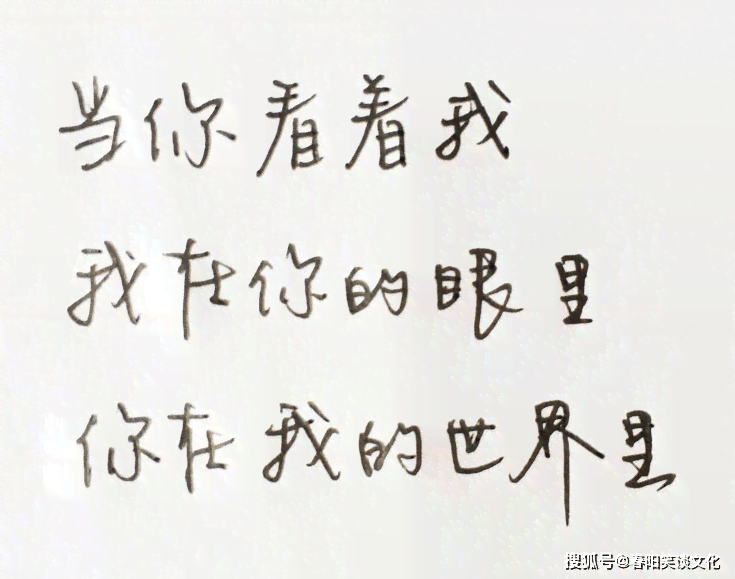 当你看着我
我在你的眼里
你在我的世界里
搜狐号@春阳笑谈文化